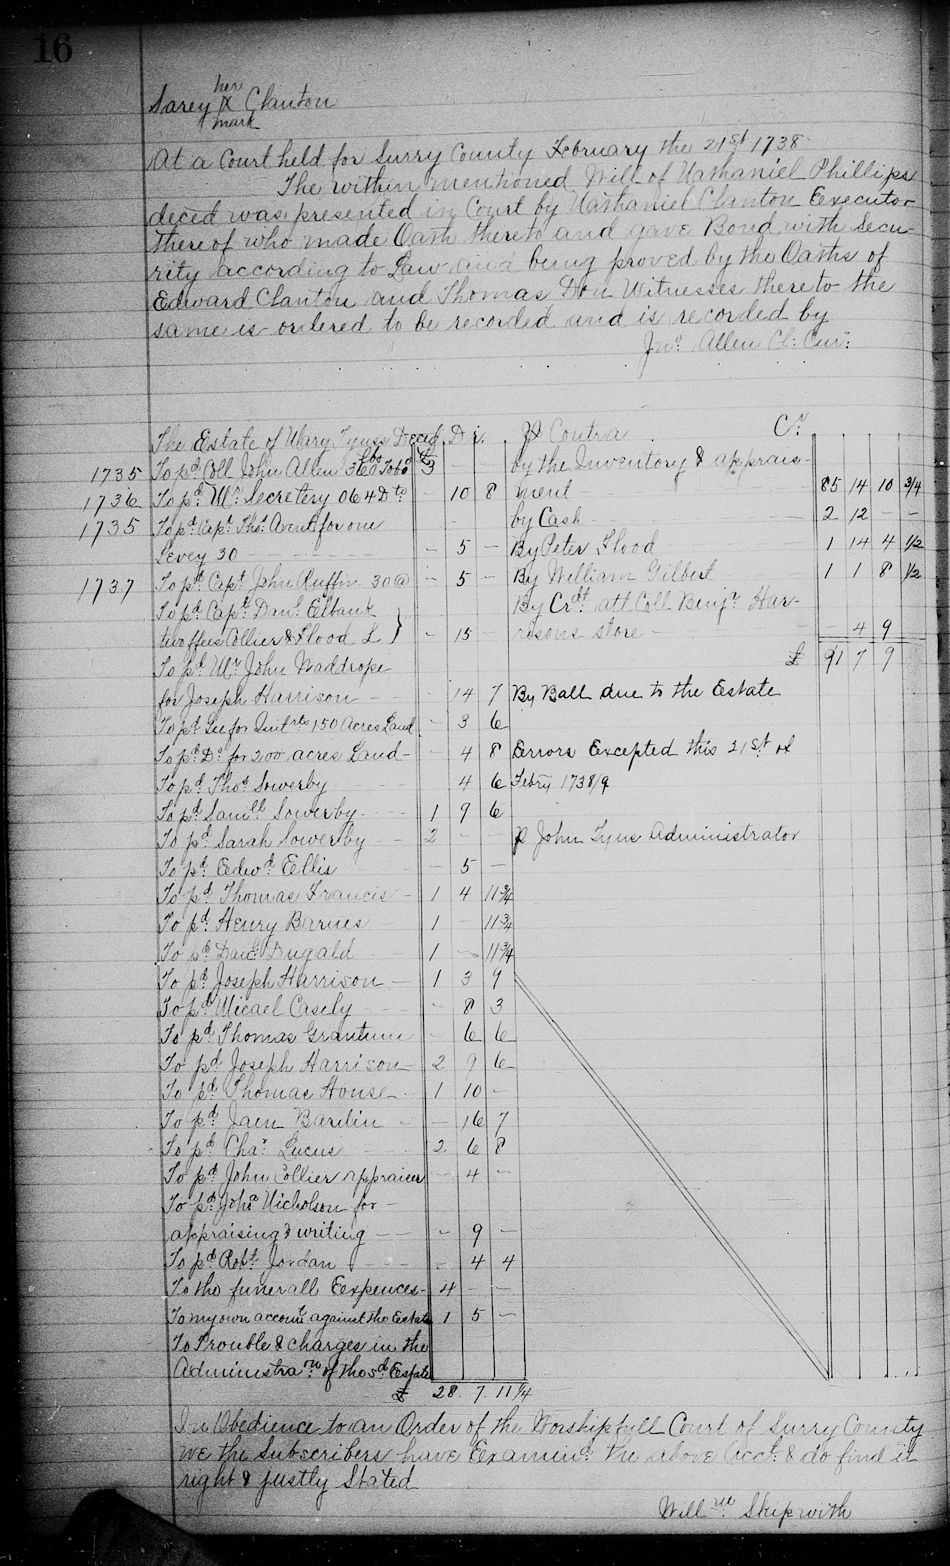 16
her
Sarey X Clanton
mark
At a Court held for Surry County February the 21st 1738
The within mentioned Will of Nathaniel Phillips
deced was presented in Court by Nathaniel Clanton Executor
thereof who made Oath thereto and gave Bond with Secu-
rity according to Law and being proved by the Oaths of
Edward Clanton and Thomas Don Witnesses thereto the
same is ordered to be recorded and is recorded by
Jno. Allen Cl: Cur:
The Estate of Mary Tyus Deced Dr.
1735 To pd Coll John Allen 360 lbs Tobo £3 - -
1736 To pd Mr Secretery 064 Dto - 10 8
1735 To pd Capt Thos Avent for one
Levey 30 - 5 -
1737 To pd Capt John Ruffin 30 @ - 5 -
To pd Capt Danl Elbank
two ffees Collier & Flood £ } - 15 -
To pd Mr John Waddrope
for Joseph Harrison - 14 7
To pd Lee for Quitrts 150 Acres Land - 3 6
To pd Do for 200 acres Land - 4 8
To pd Thos Sowerby 4 6
To pd Samll Sowerby 1 9 6
To pd Sarah Sowerby 2 - -
To pd Edwd Ellis - 5 -
To pd Thomas Francis - 1 4 11 3/4
To pd Henry Barnes 1 11 3/4
To pd Danl Dugald 1 - 11 3/4
To pd Joseph Harrison - 1 3 9
To pd Micael Casely - 8 3
To pd Thomas Grantum - 6 6
To pd Joseph Harrison 2 9 6
To pd Thomas House 1 10 -
To pd Jaen Barilin - 16 7
To pd Chas Lucus 2 6 8
To pd John Collier appraiser - 4 -
To pd John Nicholson for -
appraising & writing - - - 9 -
To pd Robt Jordan - 4 4
To the funerall Expences - 4 - -
To my own account against the Estate 1 5 -
To Trouble & charges in the
Administran of the sd Estate
£ 28. 7 11 1/4
P Contra Cr
by the Inventory & apprais-
ment 85 14 10 3/4
by Cash 2 12 - -
By Peter Flood 1 14 4 1/2
By William Gilbert 1 1 8 1/2
By Crdt att Coll Benja Har-
risons store - 4 9
£ 91 7 9
By Ball due to the Estate
Errors Excepted this 21st of
Febry 1738/9
p John Tyus Administrator
In Obedience to an Order of the Worshipfull Court of Surry County
we the Subscribers have Examind the above Acct & do find it
right & justly Stated
Willm Skipwith